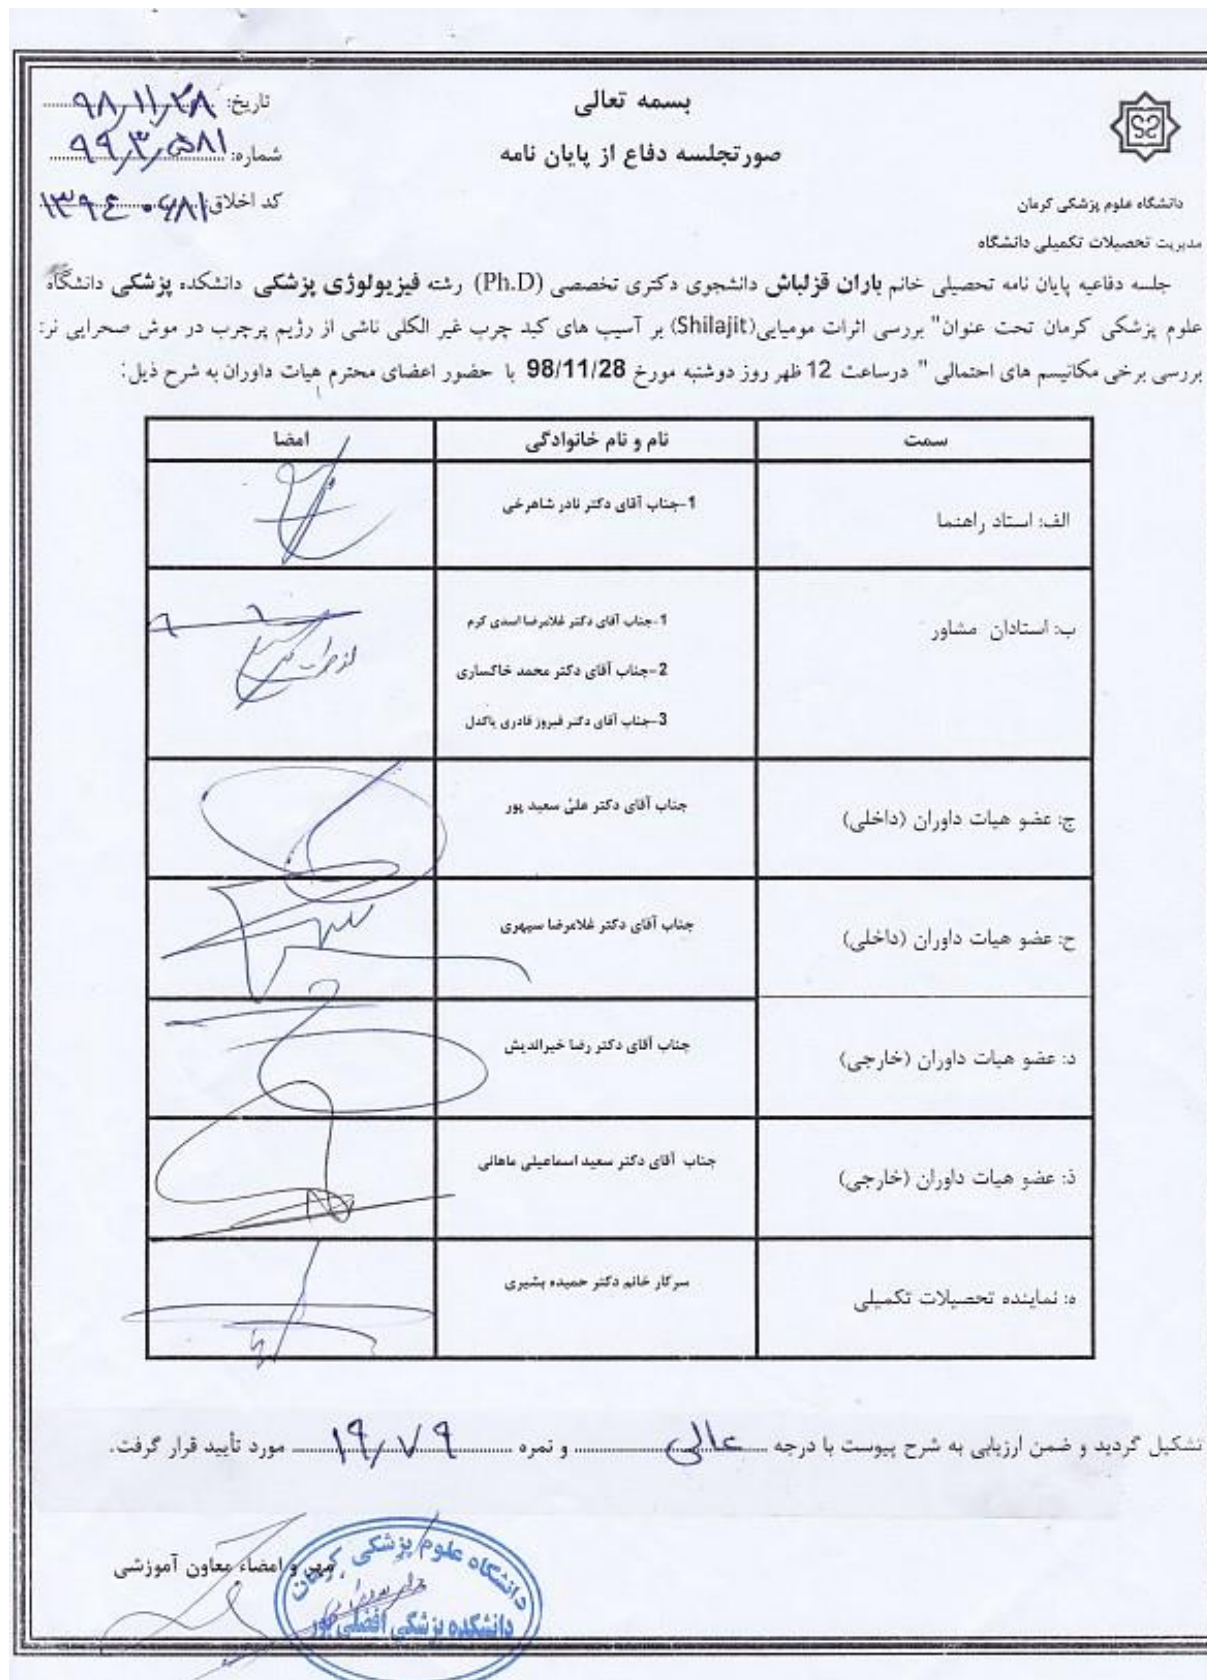 بسمه تعالی
صورتجلسه دفاع از پایان نامه
تاریخ: ۹۸/۱۱/۲۸
شماره: ۹۹/۳/۵۸۱
کد اخلاق:
دانشگاه علوم پزشکی کرمان
مدیریت تحصیلات تکمیلی دانشگاه
جلسه دفاعیه پایان نامه تحصیلی خانم باران قزلباش دانشجوی دکتری تخصصی (Ph.D) رشته فیزیولوژی پزشکی دانشکده پزشکی دانشگاه
علوم پزشکی کرمان تحت عنوان" بررسی اثرات مومیایی(Shilajit) بر آسیب های کبد چرب غیر الکلی ناشی از رژیم پرچرب در موش صحرایی نر:
بررسی برخی مکانیسم های احتمالی " درساعت 12 ظهر روز دوشنبه مورخ 98/11/28 با حضور اعضای محترم هیات داوران به شرح ذیل:
سمت نام و نام خانوادگی امضا
الف: استاد راهنما 1-جناب آقای دکتر نادر شاهرخی
ب: استادان مشاور 1-جناب آقای دکتر غلامرضا اسدی کرم
2-جناب آقای دکتر محمد خاکساری
3-جناب آقای دکتر فیروز قادری پاکدل
ج: عضو هیات داوران (داخلی) جناب آقای دکتر علی سعید پور
ح: عضو هیات داوران (داخلی) جناب آقای دکتر غلامرضا سپهری
د: عضو هیات داوران (خارجی) جناب آقای دکتر رضا خیراندیش
ذ: عضو هیات داوران (خارجی) جناب آقای دکتر سعید اسماعیلی ماهانی
ه: نماینده تحصیلات تکمیلی سرکار خانم دکتر حمیده بشیری
تشکیل گردید و ضمن ارزیابی به شرح پیوست با درجه عالی و نمره ۱۹/۷۹ مورد تأیید قرار گرفت.
مهر و امضاء معاون آموزشی
دانشگاه علوم پزشکی کرمان
دانشکده پزشکی افضلی پور